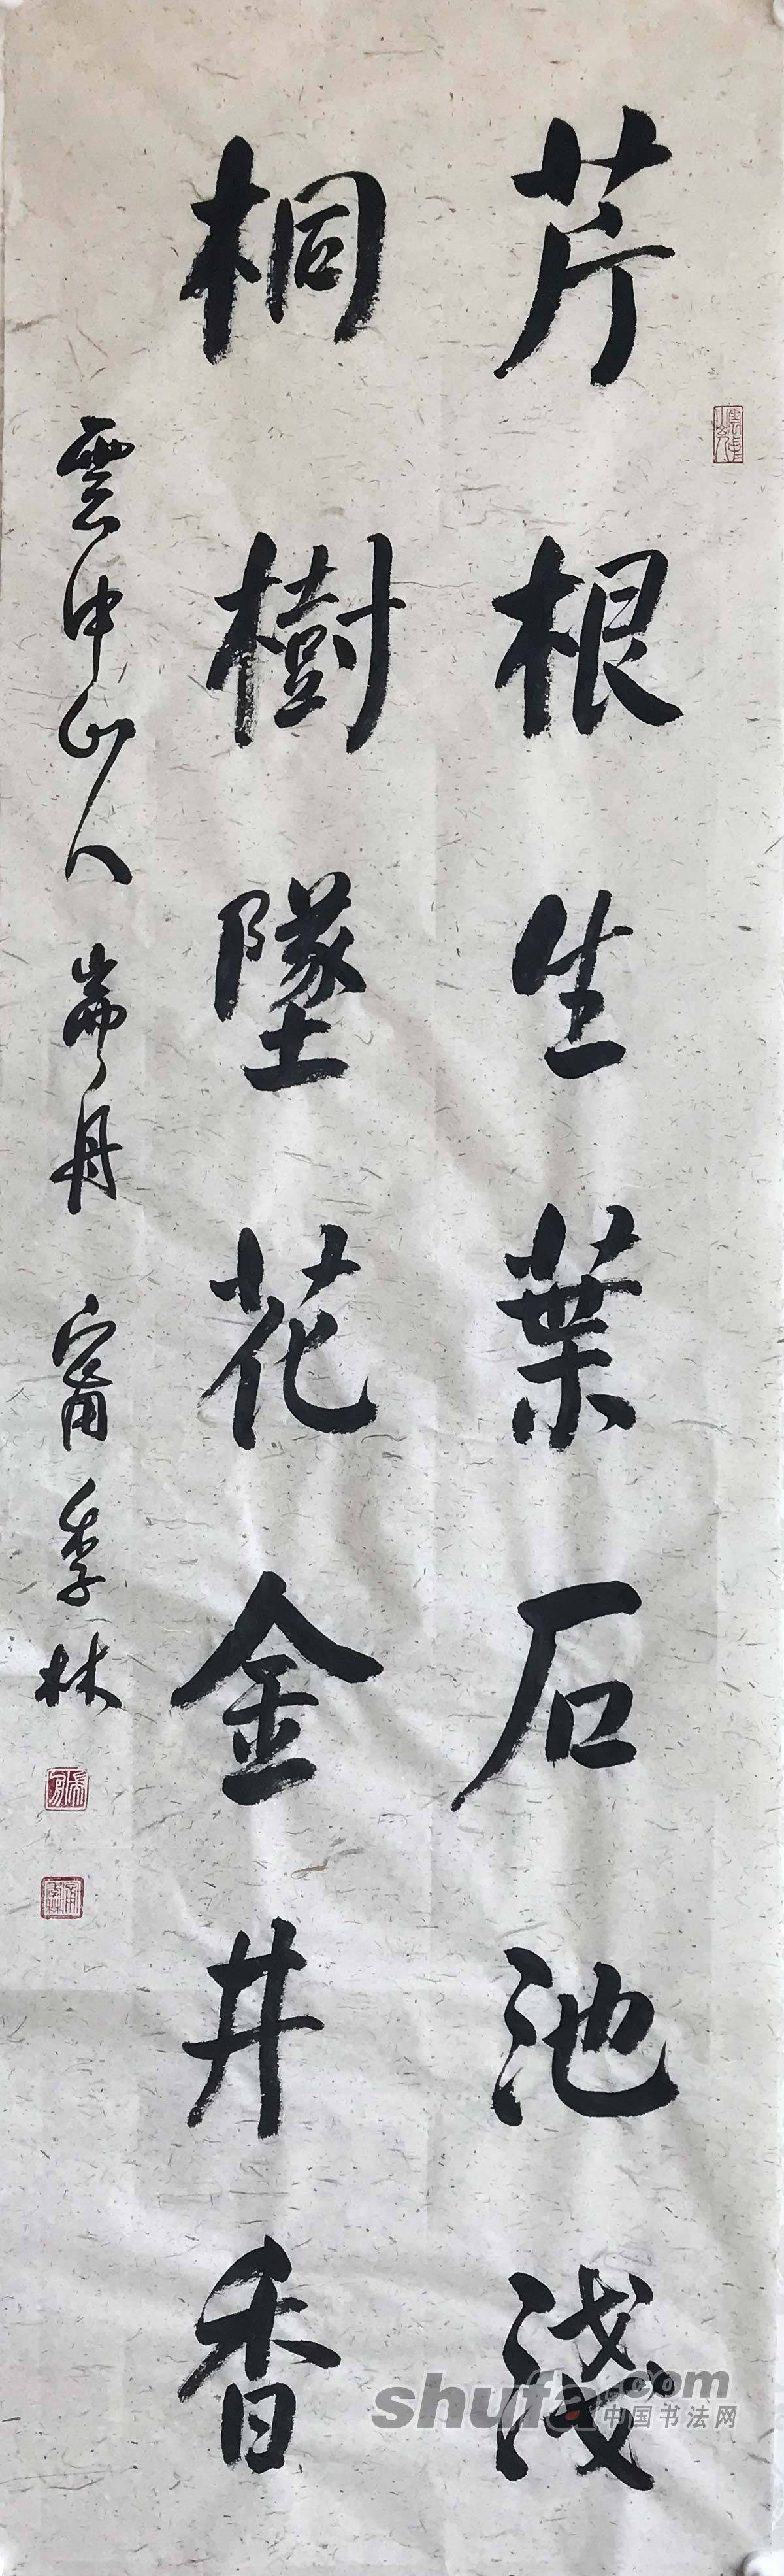 芹根生葉石池淺
桐樹墜花金井香
雲中山人 崙丹 甯季林
shufa.com
中国书法网